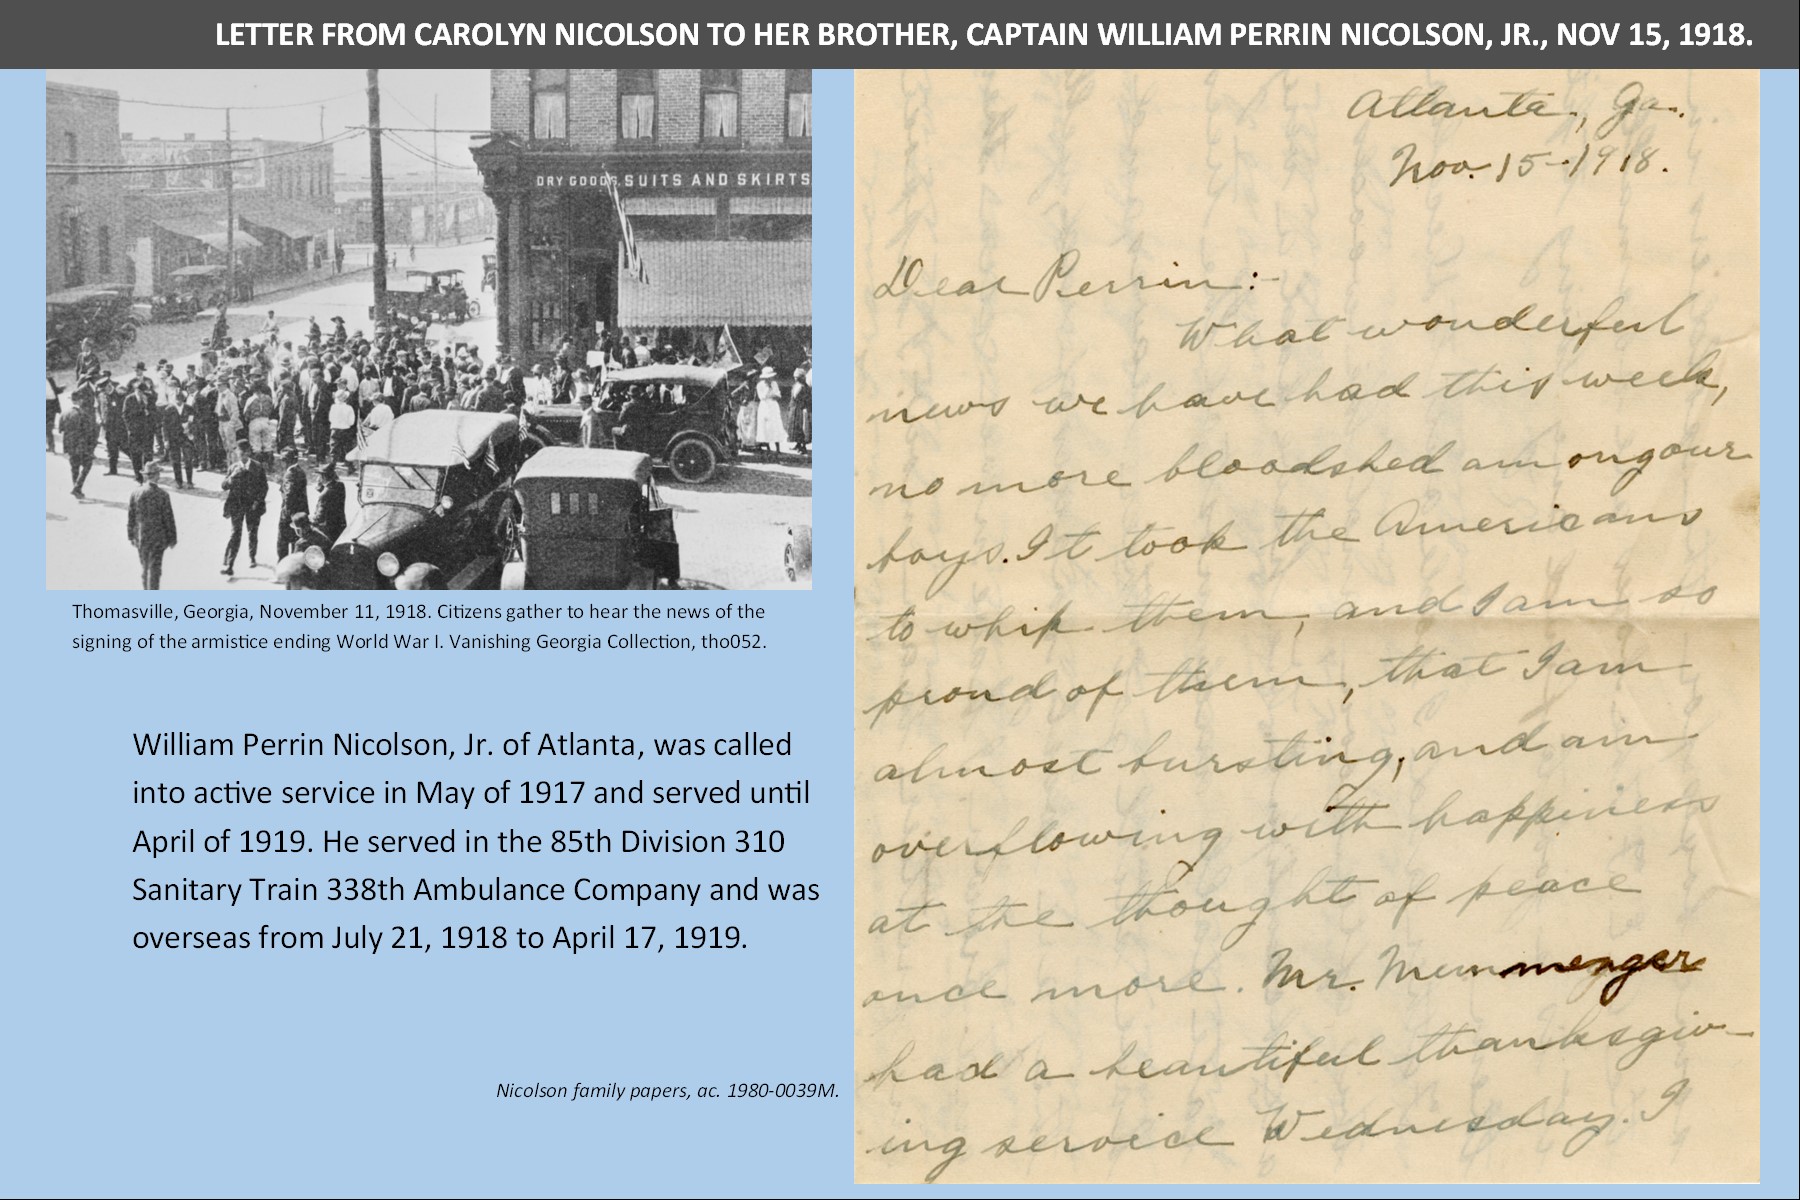 LETTER FROM CAROLYN NICOLSON TO HER BROTHER, CAPTAIN WILLIAM PERRIN NICOLSON, JR., NOV 15, 1918.
DRY GOODS, SUITS AND SKIRTS
Thomasville, Georgia, November 11, 1918. Citizens gather to hear the news of the
signing of the armistice ending World War I. Vanishing Georgia Collection, tho052.
William Perrin Nicolson, Jr. of Atlanta, was called
into active service in May of 1917 and served until
April of 1919. He served in the 85th Division 310
Sanitary Train 338th Ambulance Company and was
overseas from July 21, 1918 to April 17, 1919.
Nicolson family papers, ac. 1980-0039M.
Atlanta, Ga.
Nov. 15-1918.
Dear Perrin:-
What wonderful
news we have had this week,
no more bloodshed among our
boys. It took the Americans
to whip them, and I am so
proud of them, that I am
almost bursting, and am
overflowing with happiness
at the thought of peace
once more. Mr. Memmenger
had a beautiful thanksgiv-
ing service Wednesday. I